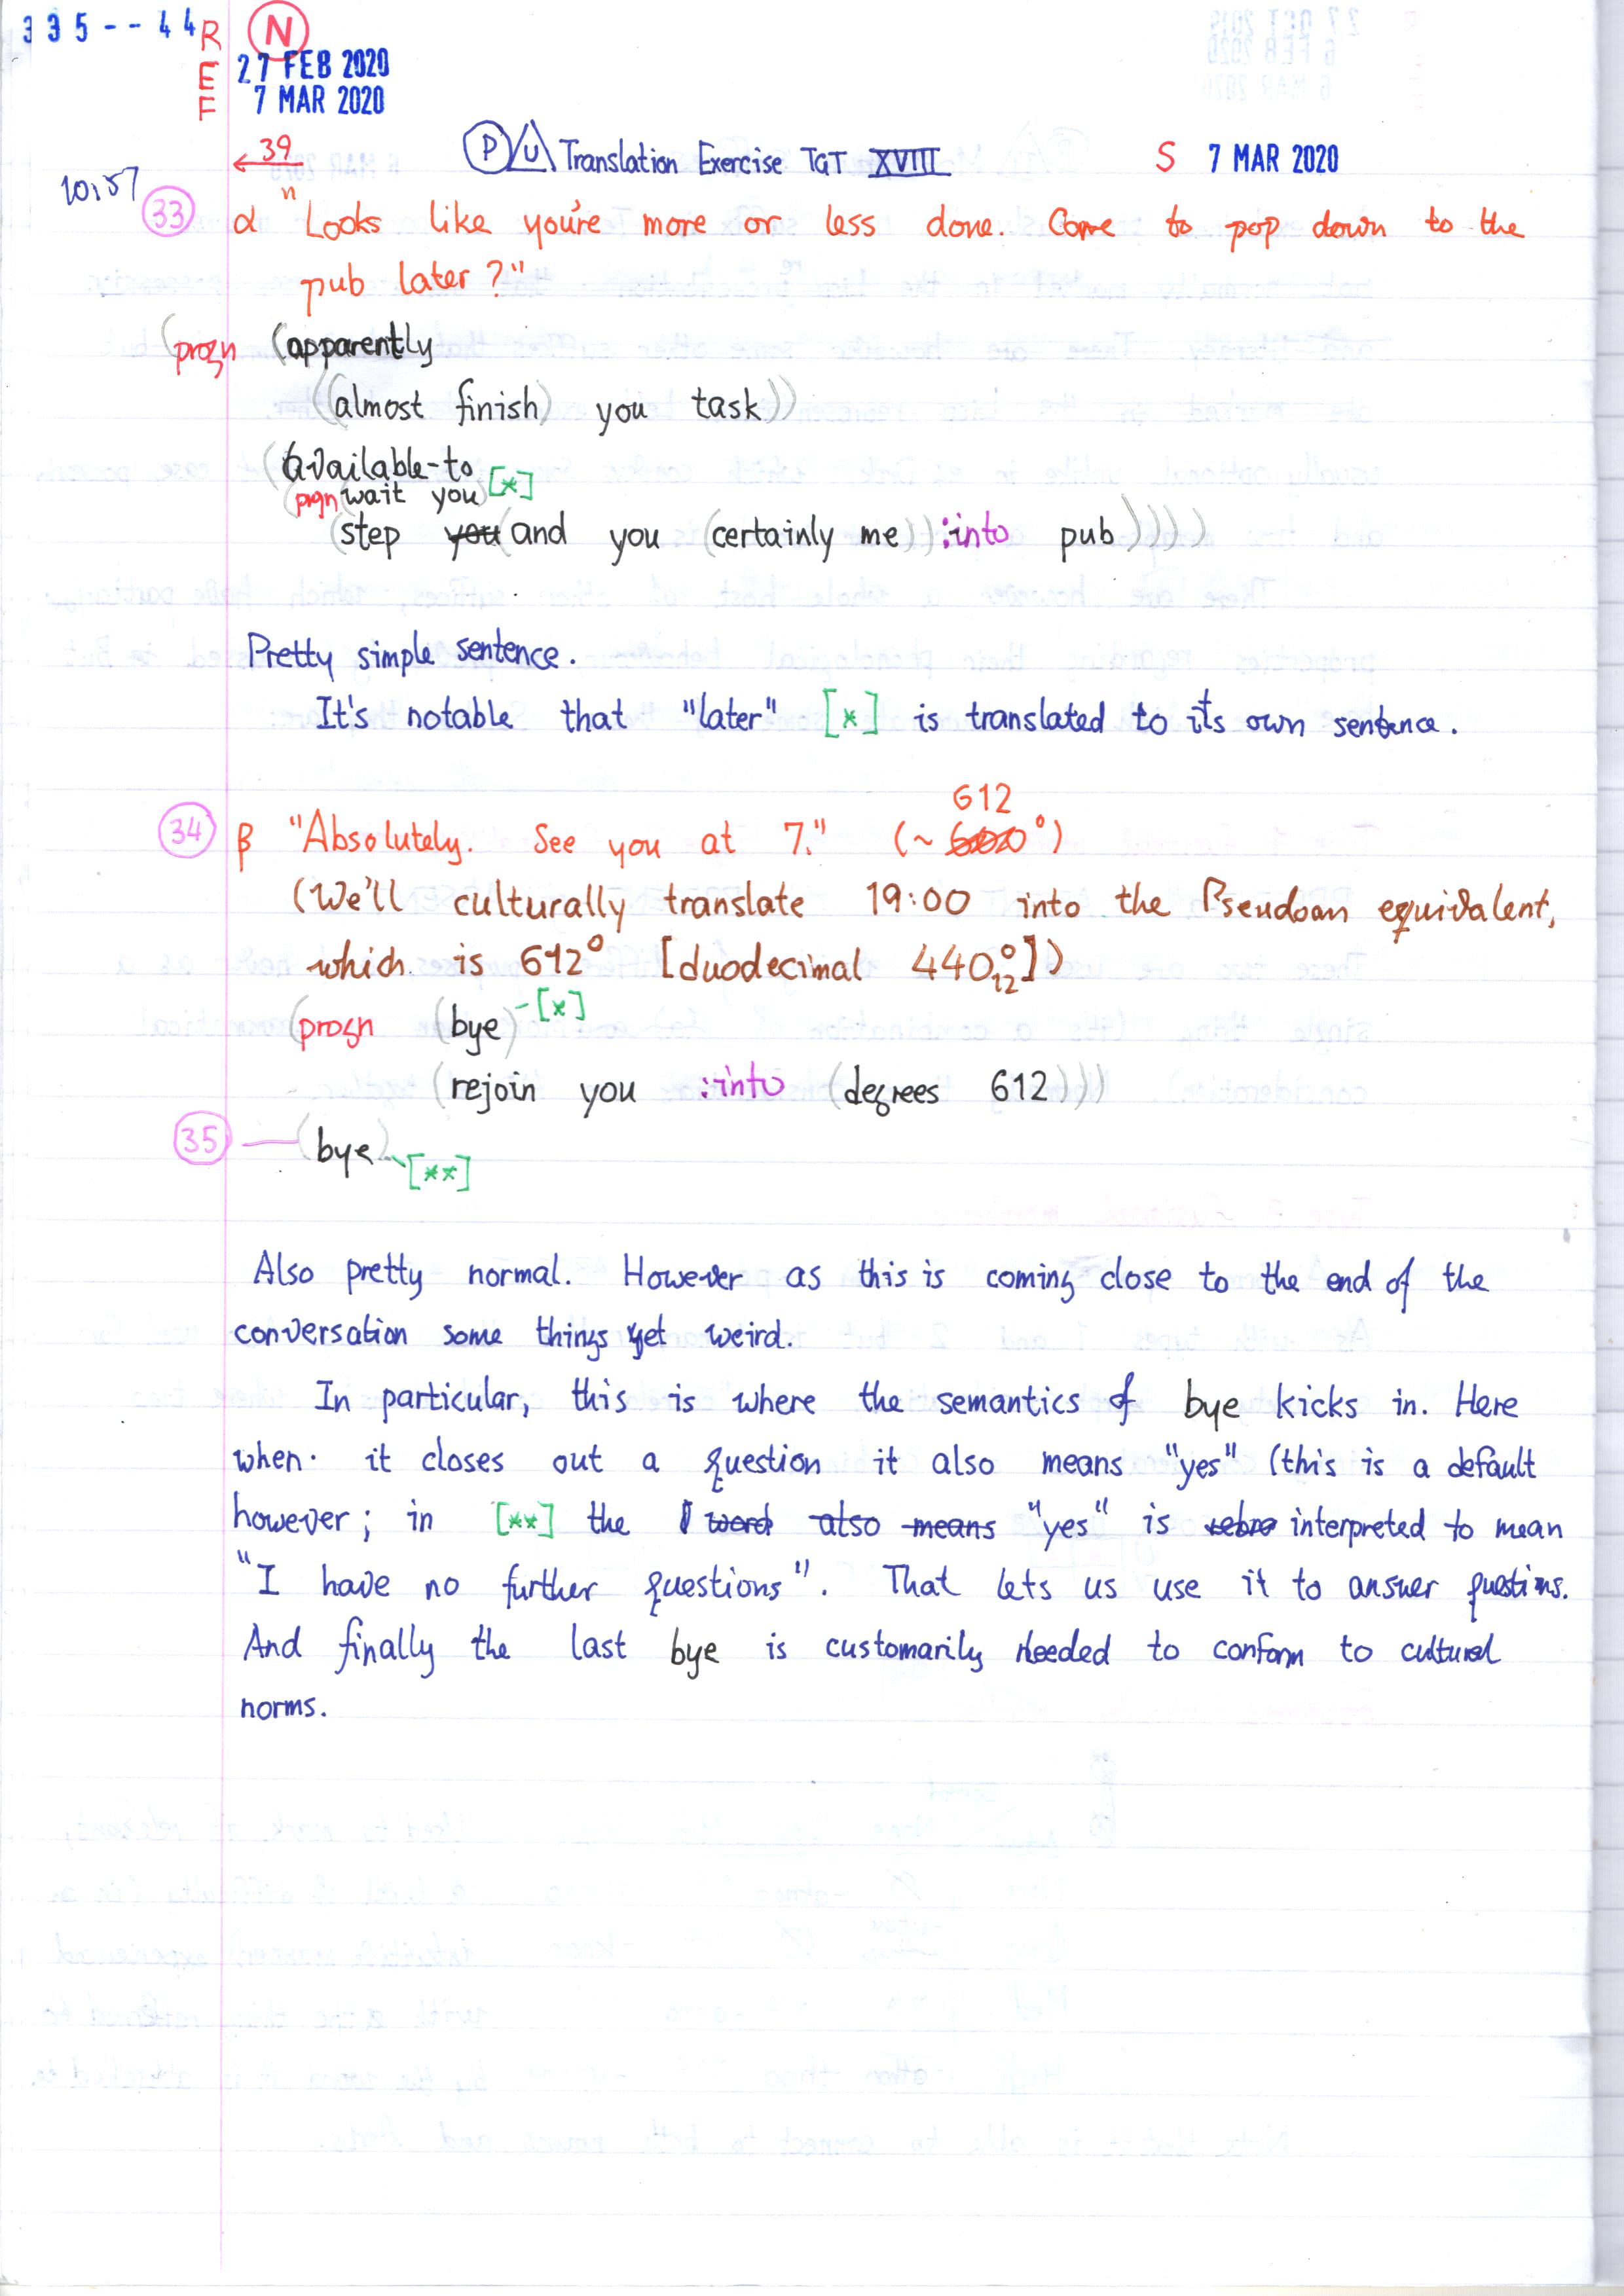 335--44 R N
E 27 FEB 2020
F 7 MAR 2020
39 P/U\ Translation Exercise TGT XVIII S 7 MAR 2020
10:57
33 α "Looks like you're more or less done. Care to pop down to the
pub later?"
(progn (apparently
((almost finish) you task))
(available-to
(progn (wait you) [*]
(step you (and you (certainly me)) :into pub))))
Pretty simple sentence.
It's notable that "later" [*] is translated to its own sentence.
612
34 β "Absolutely. See you at 7." (~ 600°)
(We'll culturally translate 19:00 into the Pseudoan equivalent,
which is 612° [duodecimal 440°₁₂])
(progn (bye) [*]
(rejoin you :into (degrees 612)))
35 (bye) [**]
Also pretty normal. However as this is coming close to the end of the
conversation some things get weird.
In particular, this is where the semantics of bye kicks in. Here
when it closes out a question it also means "yes" (this is a default
however; in [**] the word also means "yes" is interpreted to mean
"I have no further questions". That lets us use it to answer questions.
And finally the last bye is customarily needed to conform to cultural
norms.